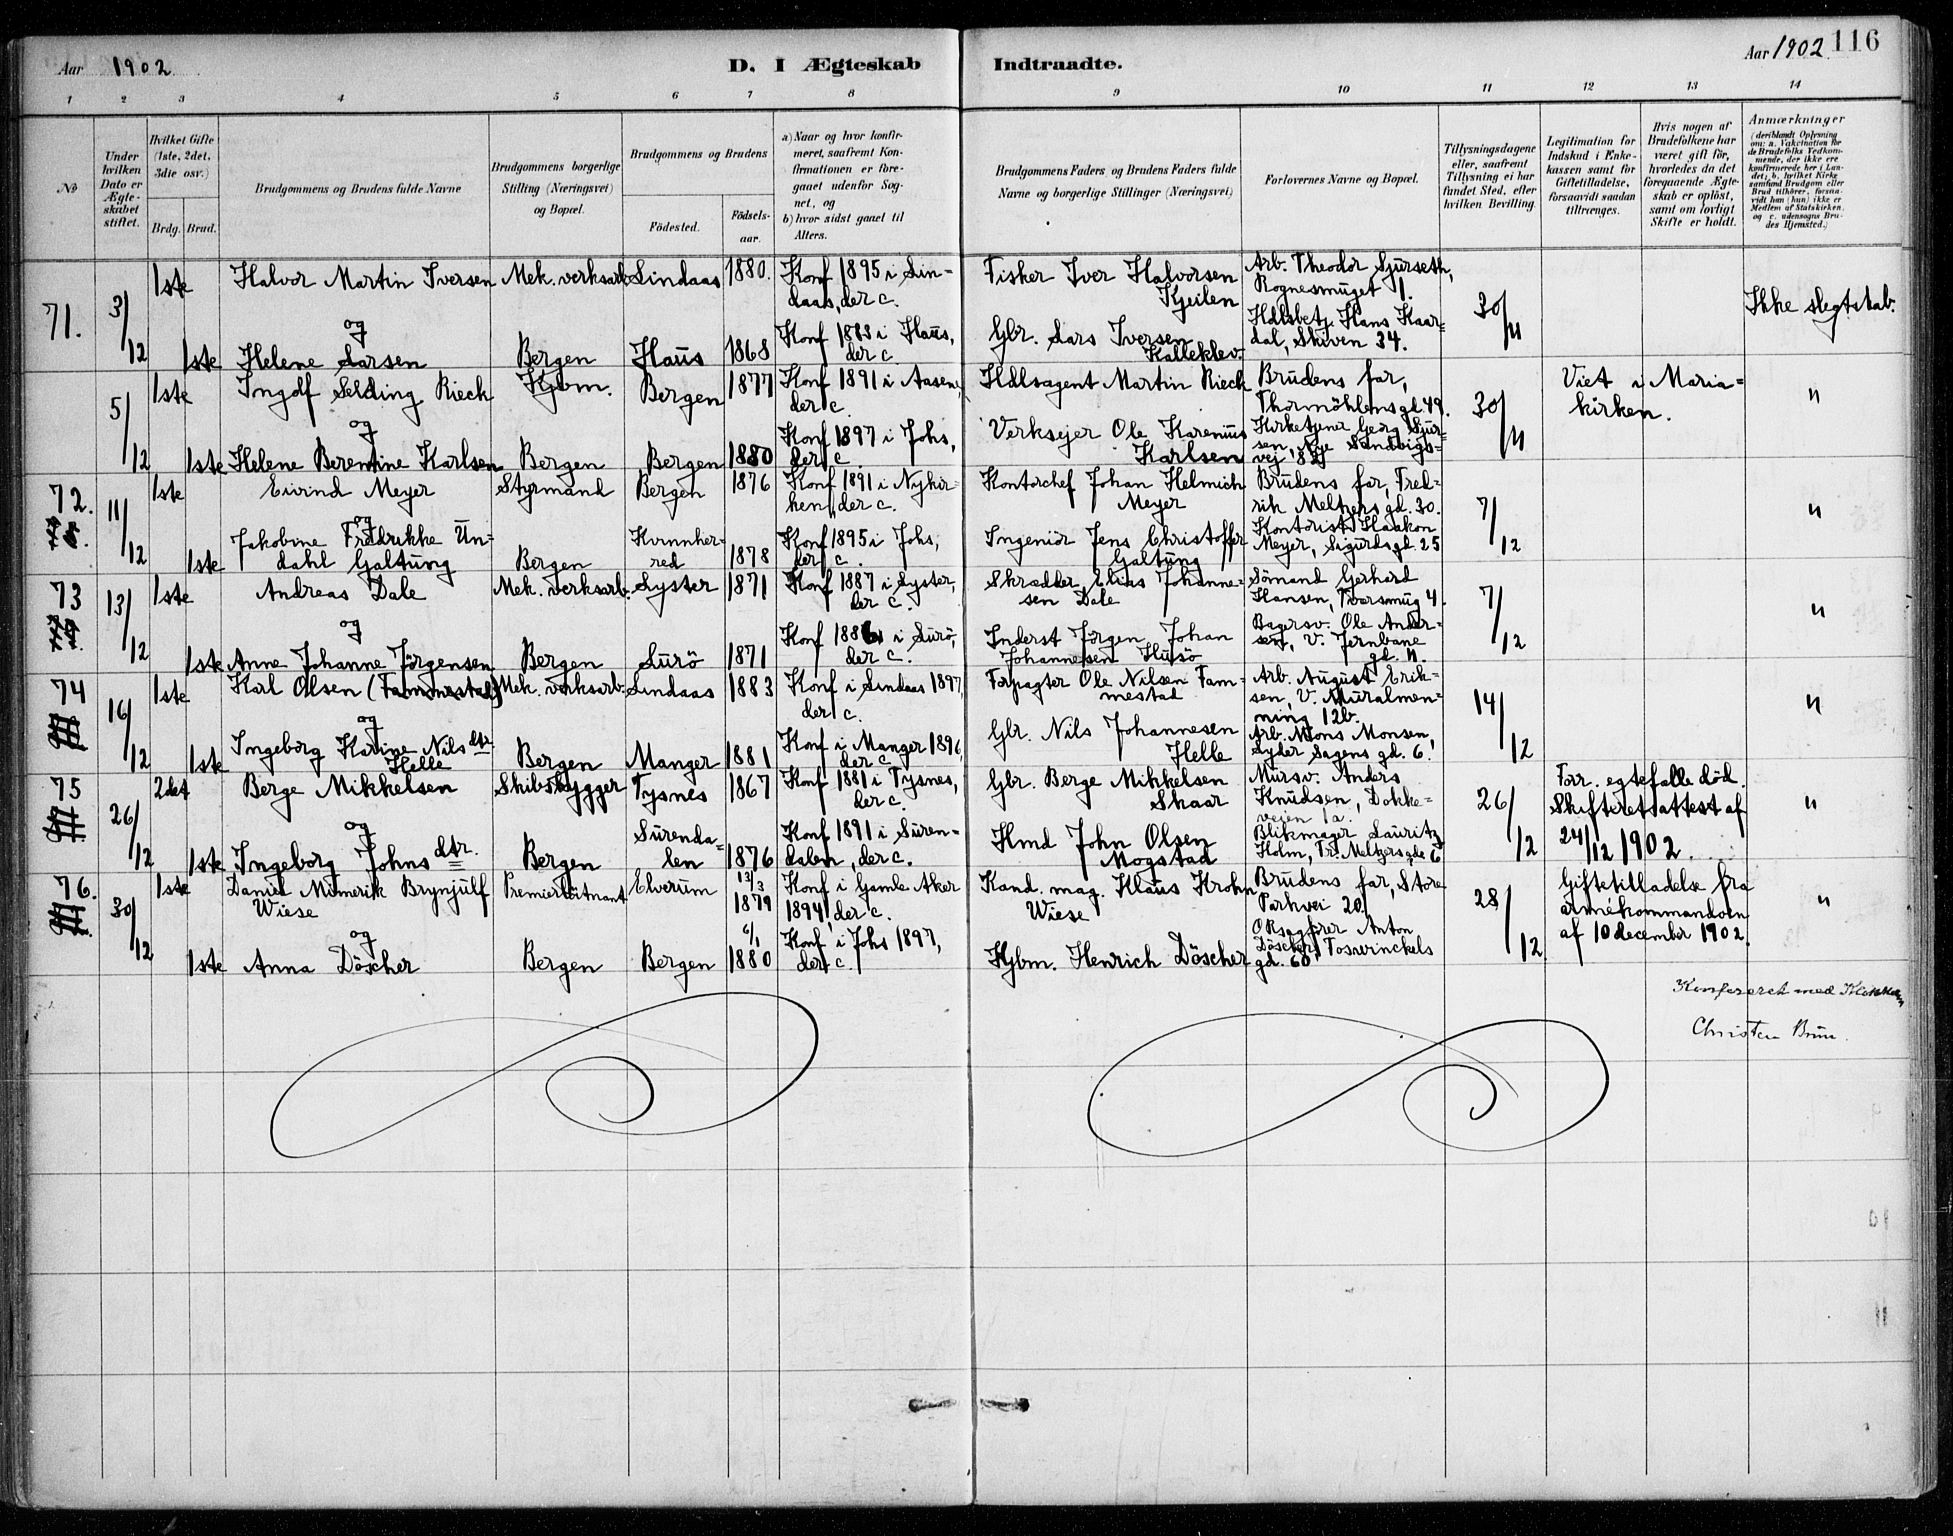 Aar 1902
D. I Ægteskab Indtraadte.
Aar 1902 116
1 2 3 4 5 6 7 8 9 10 11 12 13 14
No
Under hvilken Dato er Ægteskabet stiftet.
Hvilket Gifte (1ste, 2det, 3die osv.)
Brdg. Brud.
Brudgommens og Brudens fulde Navne
Brudgommens borgerlige Stilling (Næringsvei) og Bopæl.
Brudgommens og Brudens
Födested.
Födsels-aar.
a) Naar og hvor konfirmeret, saafremt Konfirmationen er foregaaet udenfor Sognet, og
b) hvor sidst gaaet til Alters.
Brudgommens Faders og Brudens Faders fulde Navne og borgerlige Stillinger (Næringsvei)
Forlovernes Navne og Bopæl.
Tillysningsdagene eller, saafremt Tillysning ei har fundet Sted, efter hvilken Bevilling.
Legitimation for Indskud i Enkekassen samt for Giftetilladelse, forsaavidt saadan tiltrænges.
Hvis nogen af Brudefolkene har været gift för, hvorledes da det foregaaende Ægteskab er oplöst, samt om lovligt Skifte er holdt.
Anmærkninger
(deriblandt Oplysning om: a. Vakcination for de Brudefolks Vedkommende, der ikke ere konfirmerede her i Landet; b. hvilket Kirkesamfund Brudgom eller Brud tilhörer, forsaavidt han (hun) ikke er Medlem af Statskirken. og c. udensogns Brudes Hjemsted.)
71. 3/12 1ste Halvor Martin Iversen Mek. verksarb. Lindaas 1880. Konf 1895 i Lindaas, der c. Fisker Iver Halvorsen Kjeilen Arb. Theodor Sjurseth, Rognesmuget 1. 30/11 Ikke slegtskab.
og
1ste Helene Larsen Bergen Haus 1868 Konf 1883 i Haus, der c. Gbr. Lars Iversen Kalleklev. Hdlsbetj. Hans Kaardal, Skiven 34.
5/12 1ste Ingolf Selding Rieck Kjbm. Bergen 1877 Konf 1891 i Aasene, der c. Hdlsagent Martin Rieck Brudens far, Thormöhlens gd. 49. 30/11 Viet i Mariakirken. "
og
1ste Helene Berentine Karlsen Bergen Bergen 1880 Konf 1897 i Johs, der c. Verkseier Ole Karenius Karlsen Kirketjener Georg Sjursen, Nye Sandvigsvei 82
72. 11/12 1ste Eivind Meyer Styrmand Bergen 1876 Konf 1891 i Nykirken, der c. Kontorchef Johan Helmich Meyer Brudens far, Fredrik Meltzers gd. 30. 7/12 "
og
1ste Jakobine Fredrikke Undahl Galtung Bergen Kvinnherred 1878 Konf 1895 i Johs, der c. Ingeniör Jens Christoffer Galtung Kontorist Haakon Meyer, Sigurds gd. 25
73 13/12 1ste Andreas Dale Mek. verksarb. Lyster 1871 Konf 1887 i Lyster, der c. Skrædder Elias Johannesen Dale Sömand Gerhard Hansen, Tversmug 4. 7/12 "
og
1ste Anne Johanne Jörgensen Bergen Lurö 1871 Konf 1886 i Lurö, der c. Inderst Jörgen Johan Johannesen Husö Bagersv. Ole Andersen, V. Jernbanegd. 11.
74 16/12 1ste Karl Olsen (Fammestad) Mek. verksarb. Lindaas 1883 Konf i Lindaas 1897, der c. Forpagter Ole Nilsen Fammestad Arb. August Eriksen, V. Muralmenning 12b. 14/12 "
og
1ste Ingeborg Karine Nilsdtr Helle Bergen Manger 1881 Konf i Manger 1896, der c. Gbr. Nils Johannesen Helle Arb. Mons Monsen, Lyder Sagens gd. 6.
75 26/12 2det Berge Mikkelsen Skibsbygger Tysnes 1867 Konf 1881 i Tysnes, der c. Gbr. Berge Mikkelsen Skaar Mursv. Anders Knudsen, Dokkeveien 1a. 26/12 Forr. egtefalle död. Skifteretsattest af 24/12 1902. "
og
1ste Ingeborg Johnsdtr. Bergen Surendalen 1876 Konf 1891 i Surendalen, der c. Kmd John Olsen Mogstad Blikmager Lauritz Holm, Fr. Meltzers gde 6
76. 30/12 1ste Daniel Mimerik Brynjulf Wiese Premierlötnant Elverum 13/3 1879 Konf i Gamle Aker 1894, der c. Kand. mag. Klaus Krohn Wiese Brudens far, Store Parkvei 20. 28/12 Giftetilladelse fra armékommandoen af 10 december 1902. "
og
1ste Anna Döscher Bergen Bergen 6/1 1880 Konf i Johs 1897, der c. Kjbm. Henrich Döscher Oksagförer Anton Döscher, Foswinckels gd. 60
Konfereret med Klokkeren
Christen Brun.